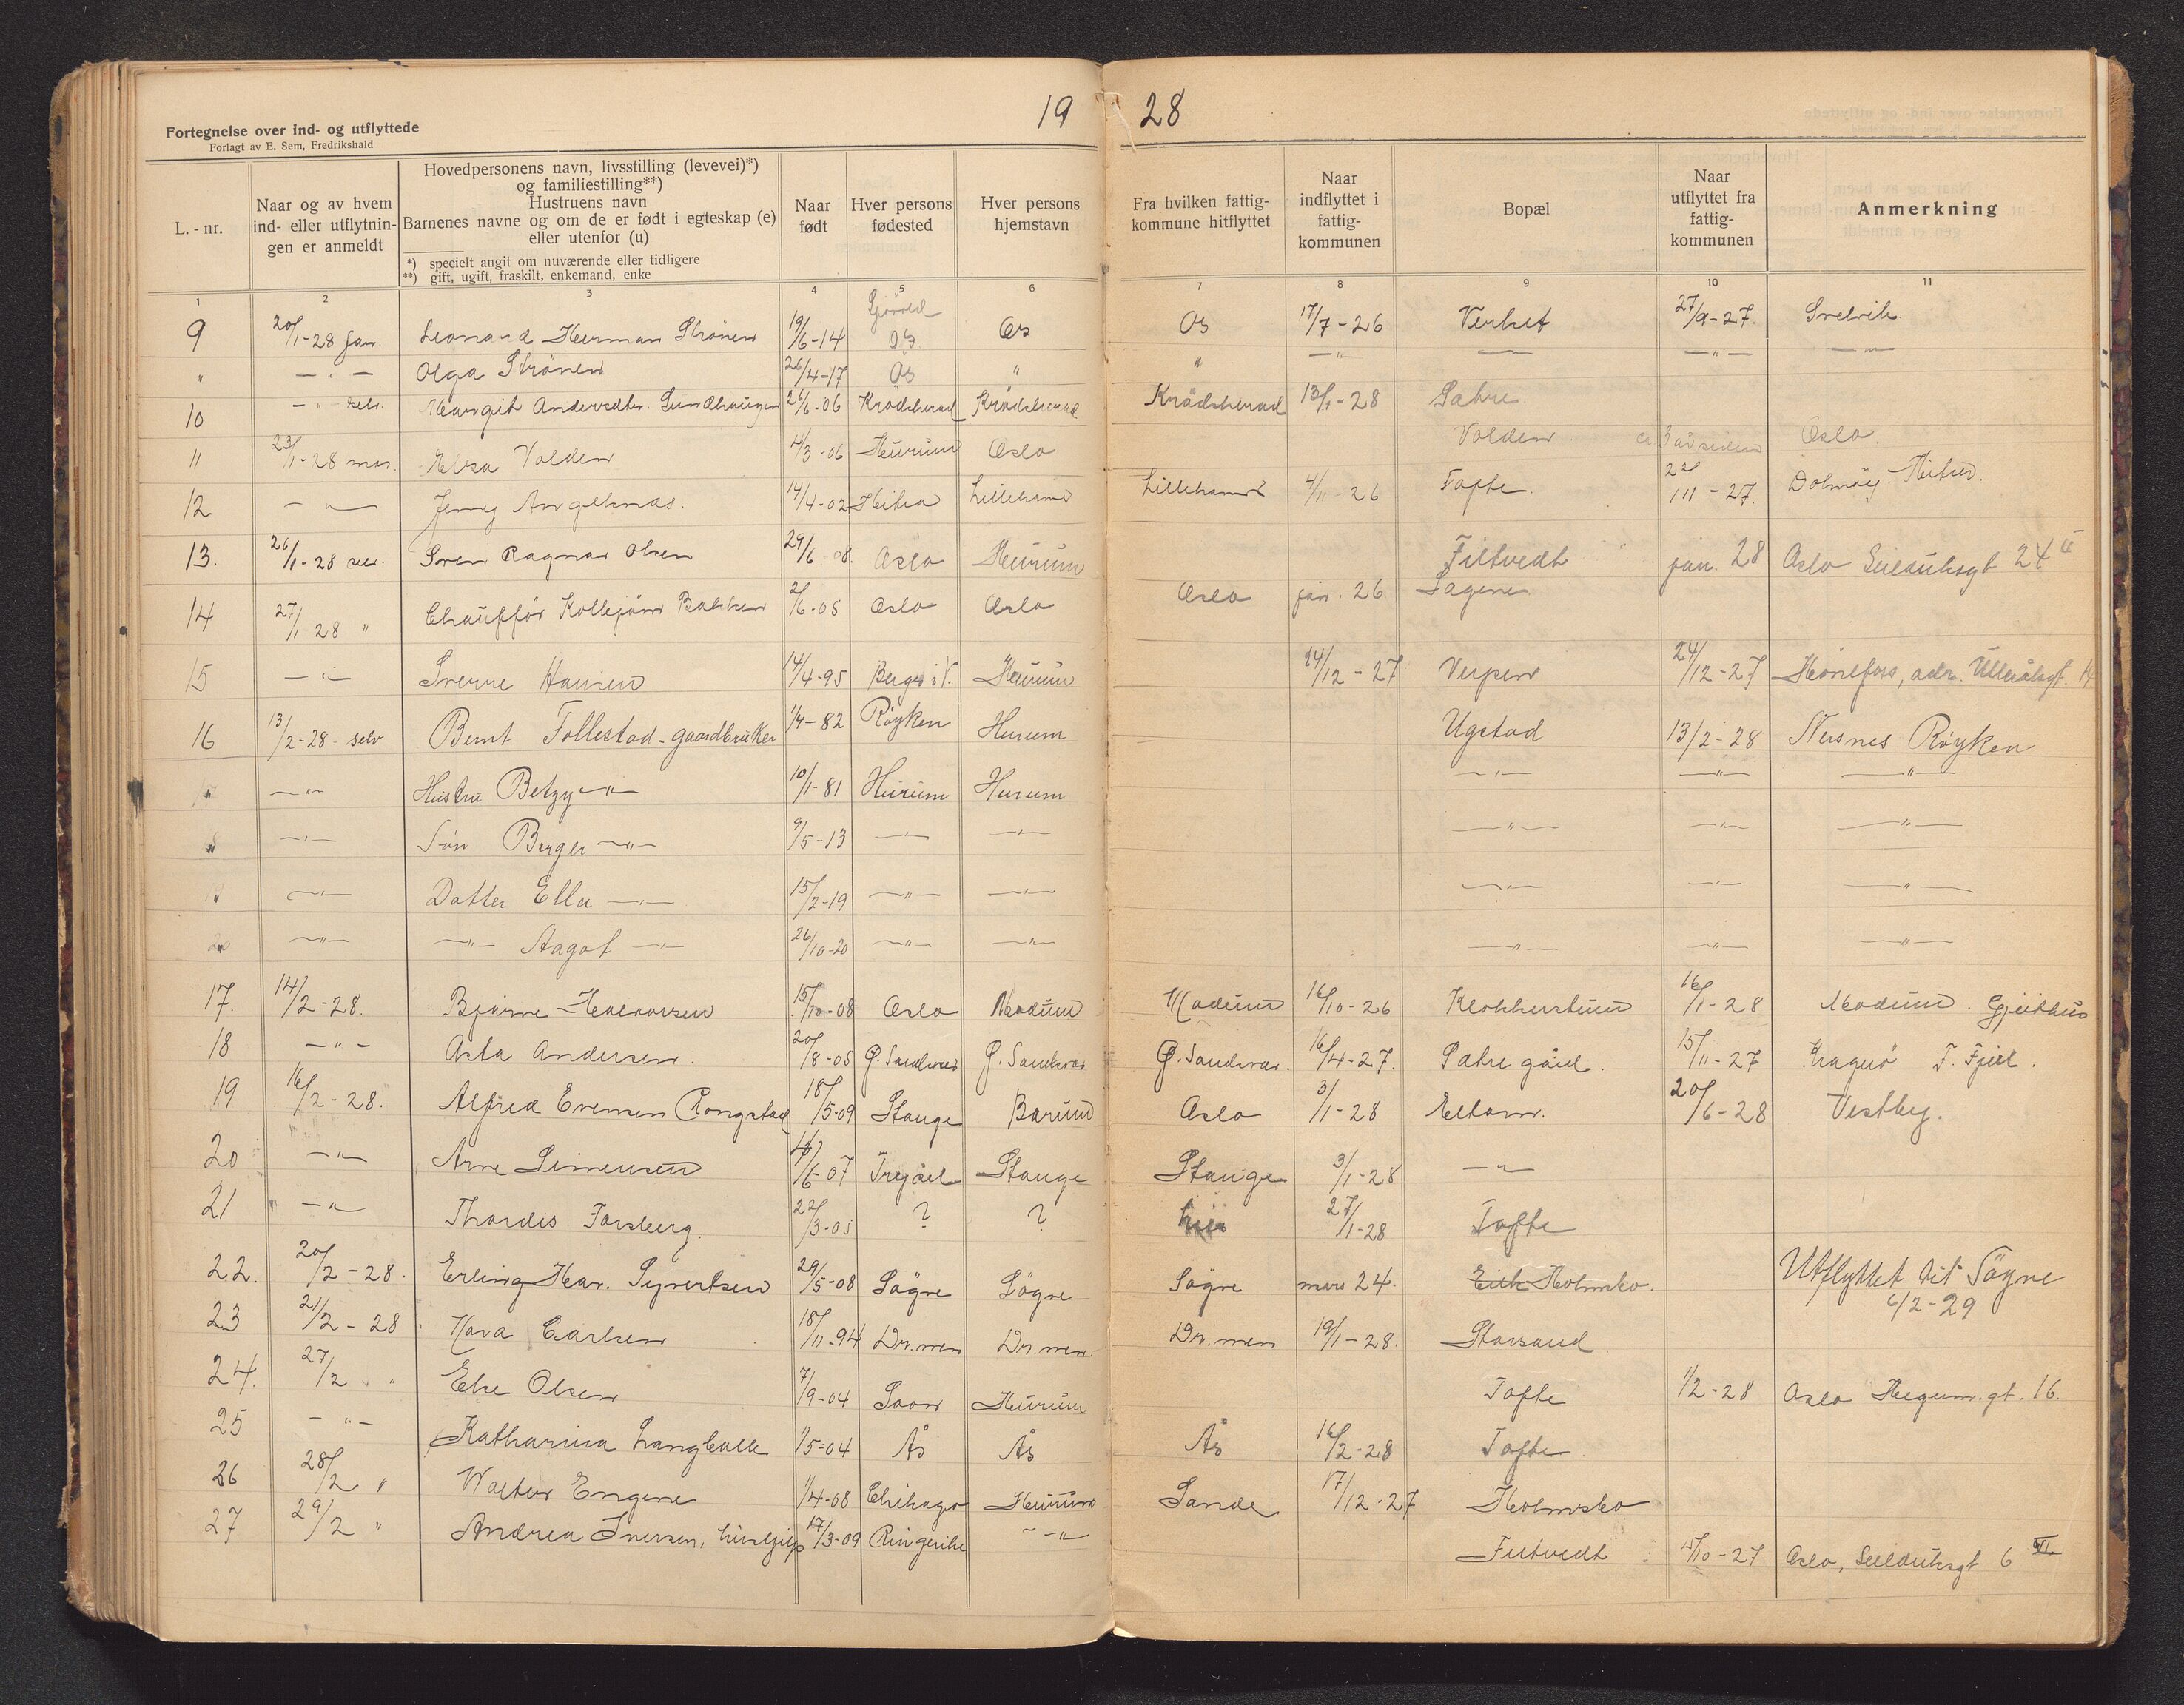 19 28
Fortegnelse over ind- og utflyttede
Forlagt av E. Sem, Fredrikshald
L.-nr.
Naar og av hvem ind- eller utflytnin-gen er anmeldt
Hovedpersonens navn, livsstilling (levevei)*)
og familiestilling**)
Hustruens navn
Barnenes navne og om de er født i egteskap (e)
eller utenfor (u)
*) specielt angit om nuværende eller tidligere
**) gift, ugift, fraskilt, enkemand, enke
Naar født
Hver persons fødested
Hver persons hjemstavn
Fra hvilken fattig-kommune hitflyttet
Naar indflyttet i fattig-kommunen
Bopæl
Naar utflyttet fra fattig-kommunen
Anmerkning
1 2 3 4 5 6 7 8 9 10 11
9 20/1-28 Leonard Herman Strönen 19/6-14 Os Os Os 17/7-26 Verket 27/9-27. Svelvik
" — " — Olga Strönen 26/4-17 Os " " — " — — — " — — " —
10 — " selv. Margit Andersdtr. 26/6-06 Krödsherad Krödsherad Krödsherad 13/1-28 Sætre.
11 23/1-28 Elsa Volden 4/3-06 Hurum Oslo Volden Oslo.
12 — " — Jenny 14/4-02 Hitra Lilleham Lilleham 4/11-26 Tofte. 22/11-27. Dolmöy Hitra.
13. 26/1-28 selv. Ragnar Olsen 29/6 08. Oslo Hurum Filtvedt jan. 28 Oslo Seilduksgt 24
14 27/1 28 " Chauffør Bakken 2/6-05 Oslo Oslo Oslo jan. 26 Sagene
15 — " — Sverre Hansen 14/4-95 Berger i V. Hurum 24/12-27 Verpen 24/12-27 Hönefoss, adr. Ullerålsgt. 14
16 13/2-28- selv Bernt Follestad - gaardbruker 1/4-82 Röyken Hurum Ugstad 13/2-28 Nesnes Röyken
— " — Hustru Betzy — " — 10/1-81 Hurum Hurum — " — — " — — " —
— " — Sön Birger — " — 9/5-13 — " — — " — — " — — " — — " —
— " — Datter Ella — " — 15/2-19 — " — — " — — " — — " — — " —
— " — — " — Aagot — " — 26/10-20 — " — — " — — " — — " — — " —
17. 14/2-28. Bjarne Halvorsen 15/10-08 Oslo Modum Modum 16/10-26 Klokkerstuen 16/1-28 Modum. Gjeithus
18 — " — Asta Andersen. 20/8-05 Ø. Sandsvær Ø. Sandsvær Ø. Sandsvær. 16/4-27. Sætre gård. 15/11-27 Kragerö
19 16/2-28. Alfred Evensen Rongstad 18/5-09 Stange Bærum Oslo 3/1-28 20/6-28 Vestby.
20 — " — Arne Simensen /6-07 Trysil Stange Stange 3/1-28 — " —
21 — " — Thordis Forsberg. 22/3-05 ? ? 27/1-28 Tofte
22. 20/2-28. Erling Har. Syvertsen 29/5-08 Sögne Sögne Sögne mars 24. Holmsbo. Utflyttet til Sögne
6/2-29
23 21/2-28 Carlsen 18/11-94 Dr.men Dr.men. Dr.men 19/1-28. Storsand.
24. 27/2 " Else Olsen 7/9-04 Soon Hurum Tofte 1/2-28 Oslo Hegerm.gt. 16.
25 — " — Katharina 1/5-04 Ås Ås Ås 16/2-28 Tofte.
26 28/2 " Walter Engene 1/4-08 Chikago Hurum Sande 17/12-27 Holmsbo
27 29/2 " Andrea Iversen, 17/3-09 Ringerike — " Filtvedt 15/10-27 Oslo, Seilduksgt 6